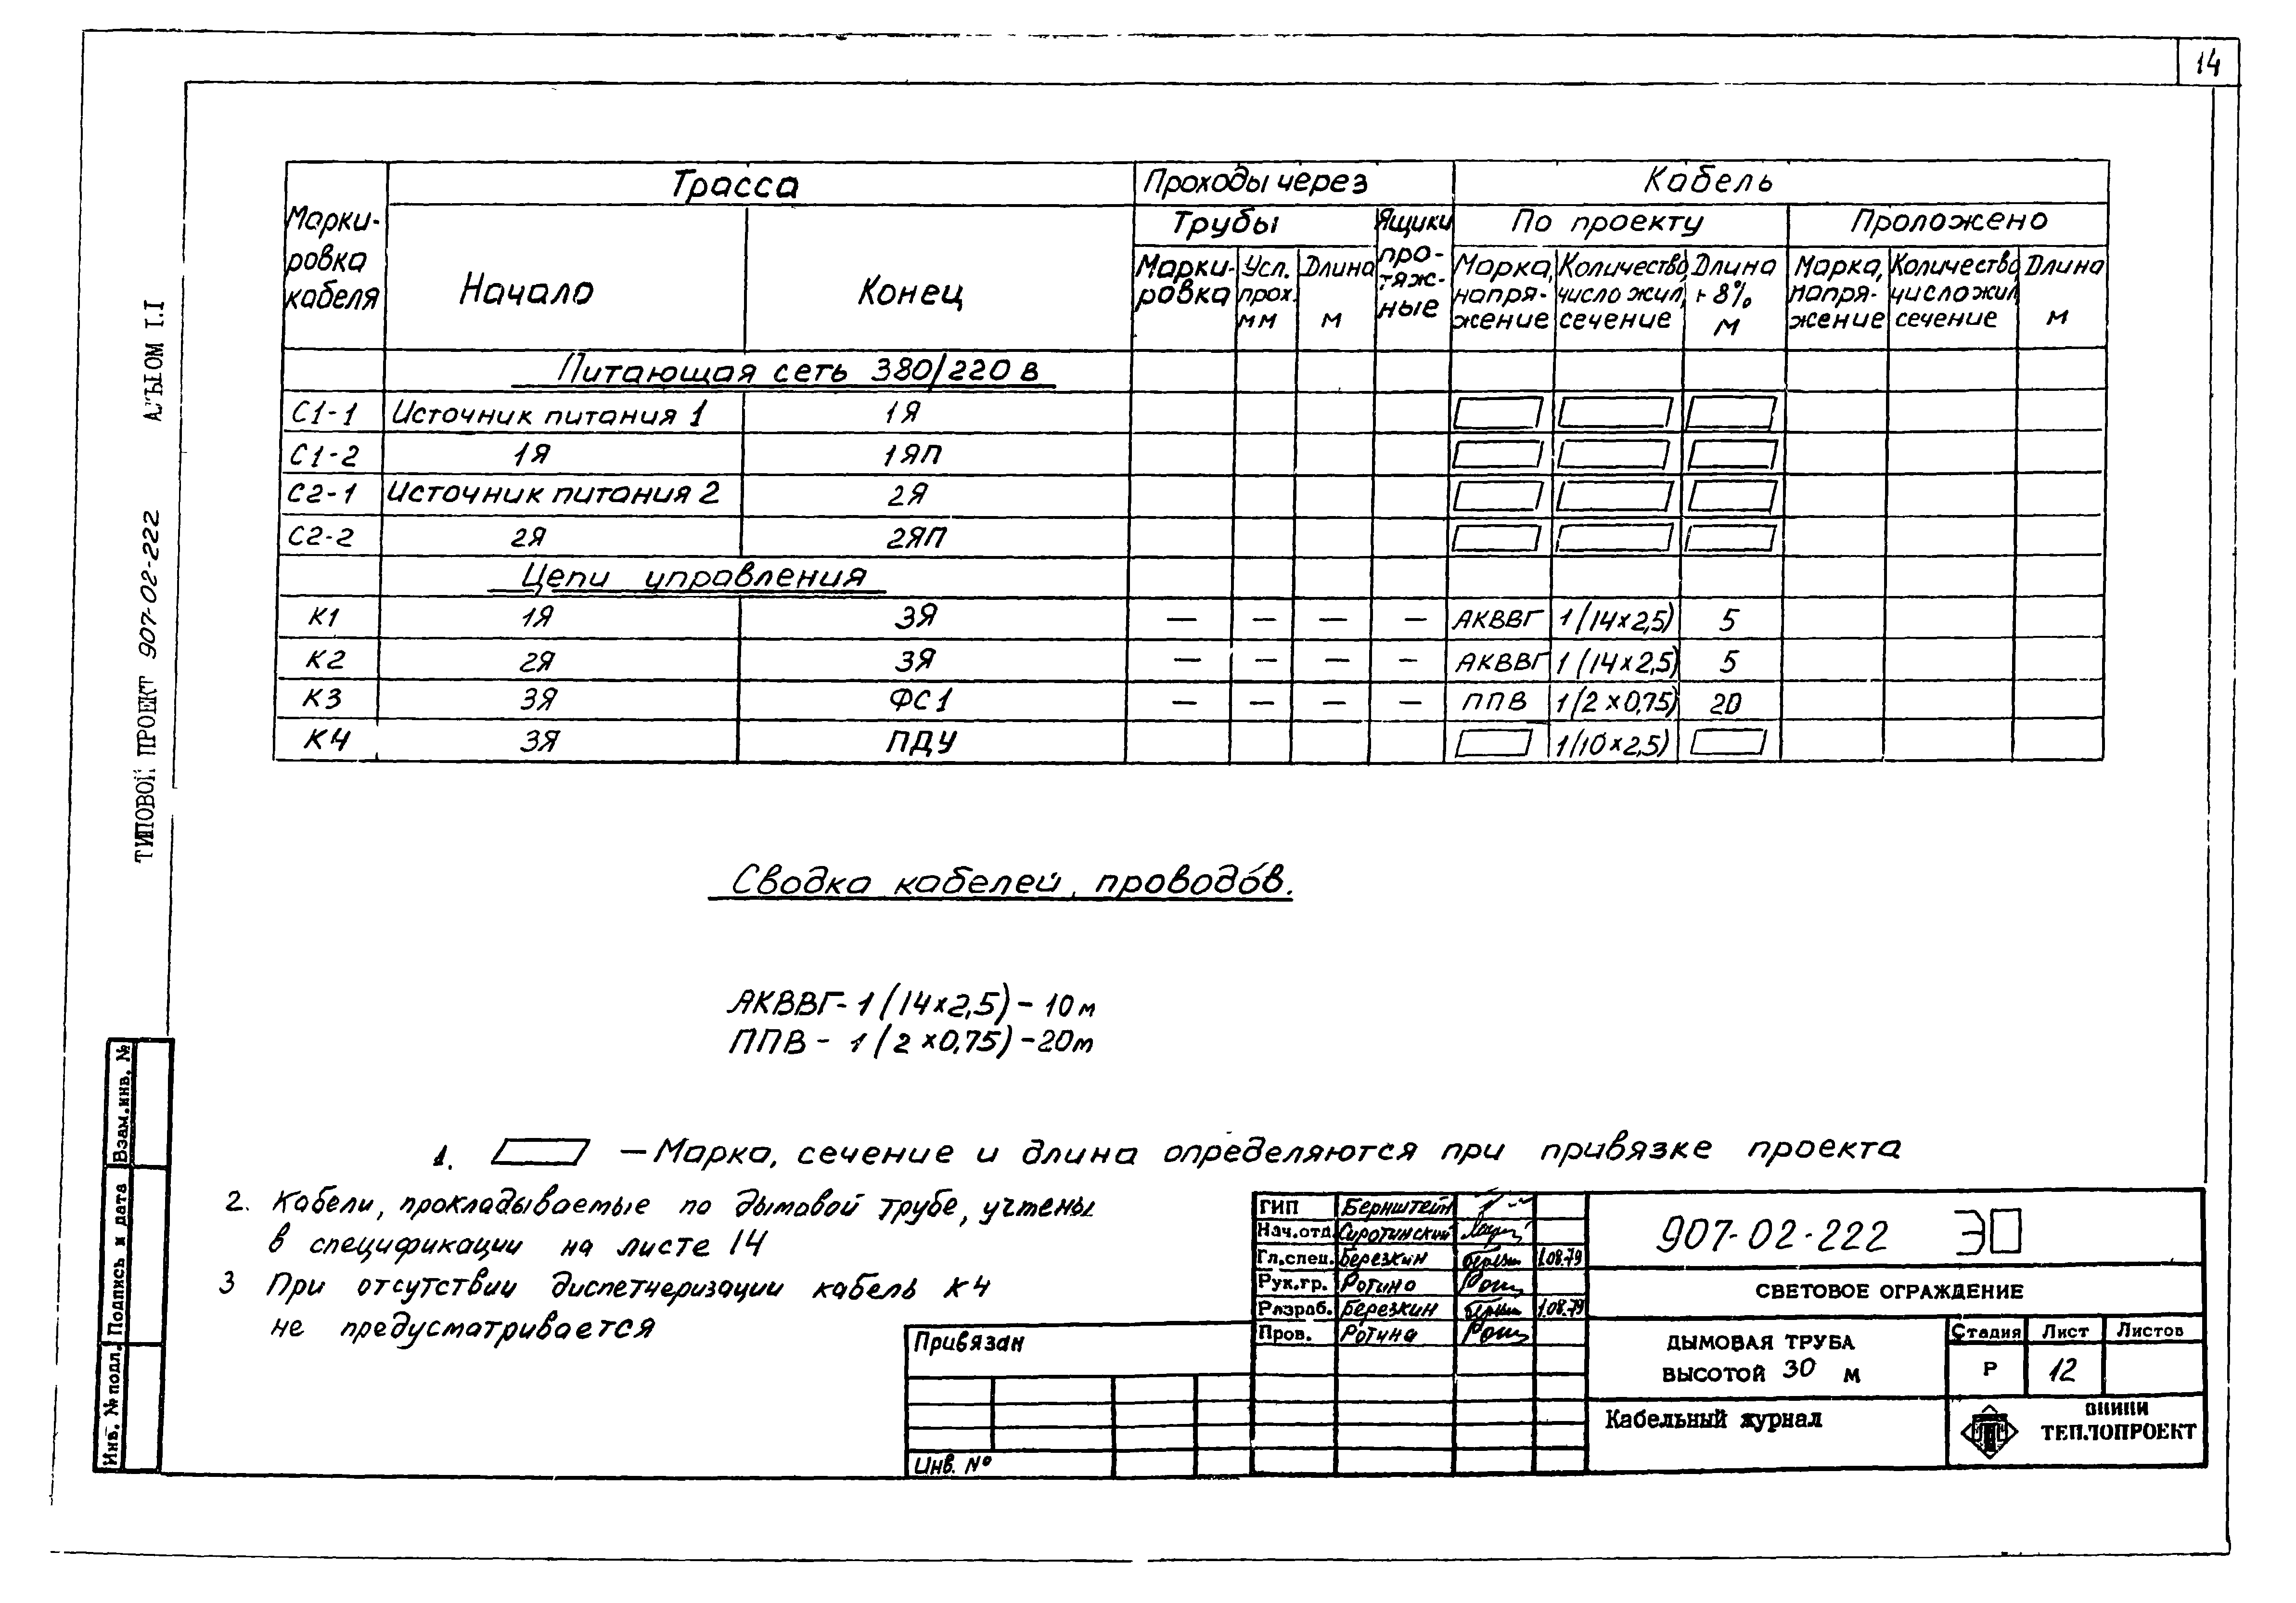 14
ТИПОВОЙ ПРОЕКТ 907-02-222 АЛЬБОМ I.I
Марки-
ровка
кабеля
Трасса
Начало
Конец
Проходы через
Трубы
Марки-
ровка
Усл.
прох.
мм
Длина
м
Ящики
про-
тяж-
ные
Кабель
По проекту
Марка,
напря-
жение
Количество,
число жил,
сечение
Длина
+ 8%
м
Проложено
Марка,
напря-
жение
Количество,
число жил
сечение
Длина
м
Питающая сеть 380/220 в
С1-1 Источник питания 1 1Я
С1-2 1Я 1ЯП
С2-1 Источник питания 2 2Я
С2-2 2Я 2ЯП
Цепи управления
К1 1Я 3Я — — — — АКВВГ 1/14×2,5) 5
К2 2Я 3Я — — — — АКВВГ 1 (14×2,5) 5
К3 3Я ФС1 — — — — ППВ 1/2×0,75) 20
К4 3Я ПДУ 1/10×2,5)
Сводка кабелей, проводов.
АКВВГ- 1 (14×2,5) - 10 м
ППВ - 1 (2×0,75) - 20м
1. — Марка, сечение и длина определяются при привязке проекта
2. Кабели, прокладываемые по дымовой трубе, учтены
в спецификации на листе 14
3 При отсутствии диспетчеризации кабель К4
не предусматривается
Взам.инв. №
Подпись и дата
Инв. № подл.
Привязан
Инв. №
ГИП Бернштейн
Нач.отд. Сиротинский
Гл.спец. Березкин 1.08.79
Рук.гр. Ротино
Разраб. Березкин 1.08.79
Пров. Ротина
907-02-222 ЭО
СВЕТОВОЕ ОГРАЖДЕНИЕ
ДЫМОВАЯ ТРУБА
ВЫСОТОЙ 30 М
Стадия Лист Листов
Р 12
Кабельный журнал
ВНИПИ
ТЕПЛОПРОЕКТ